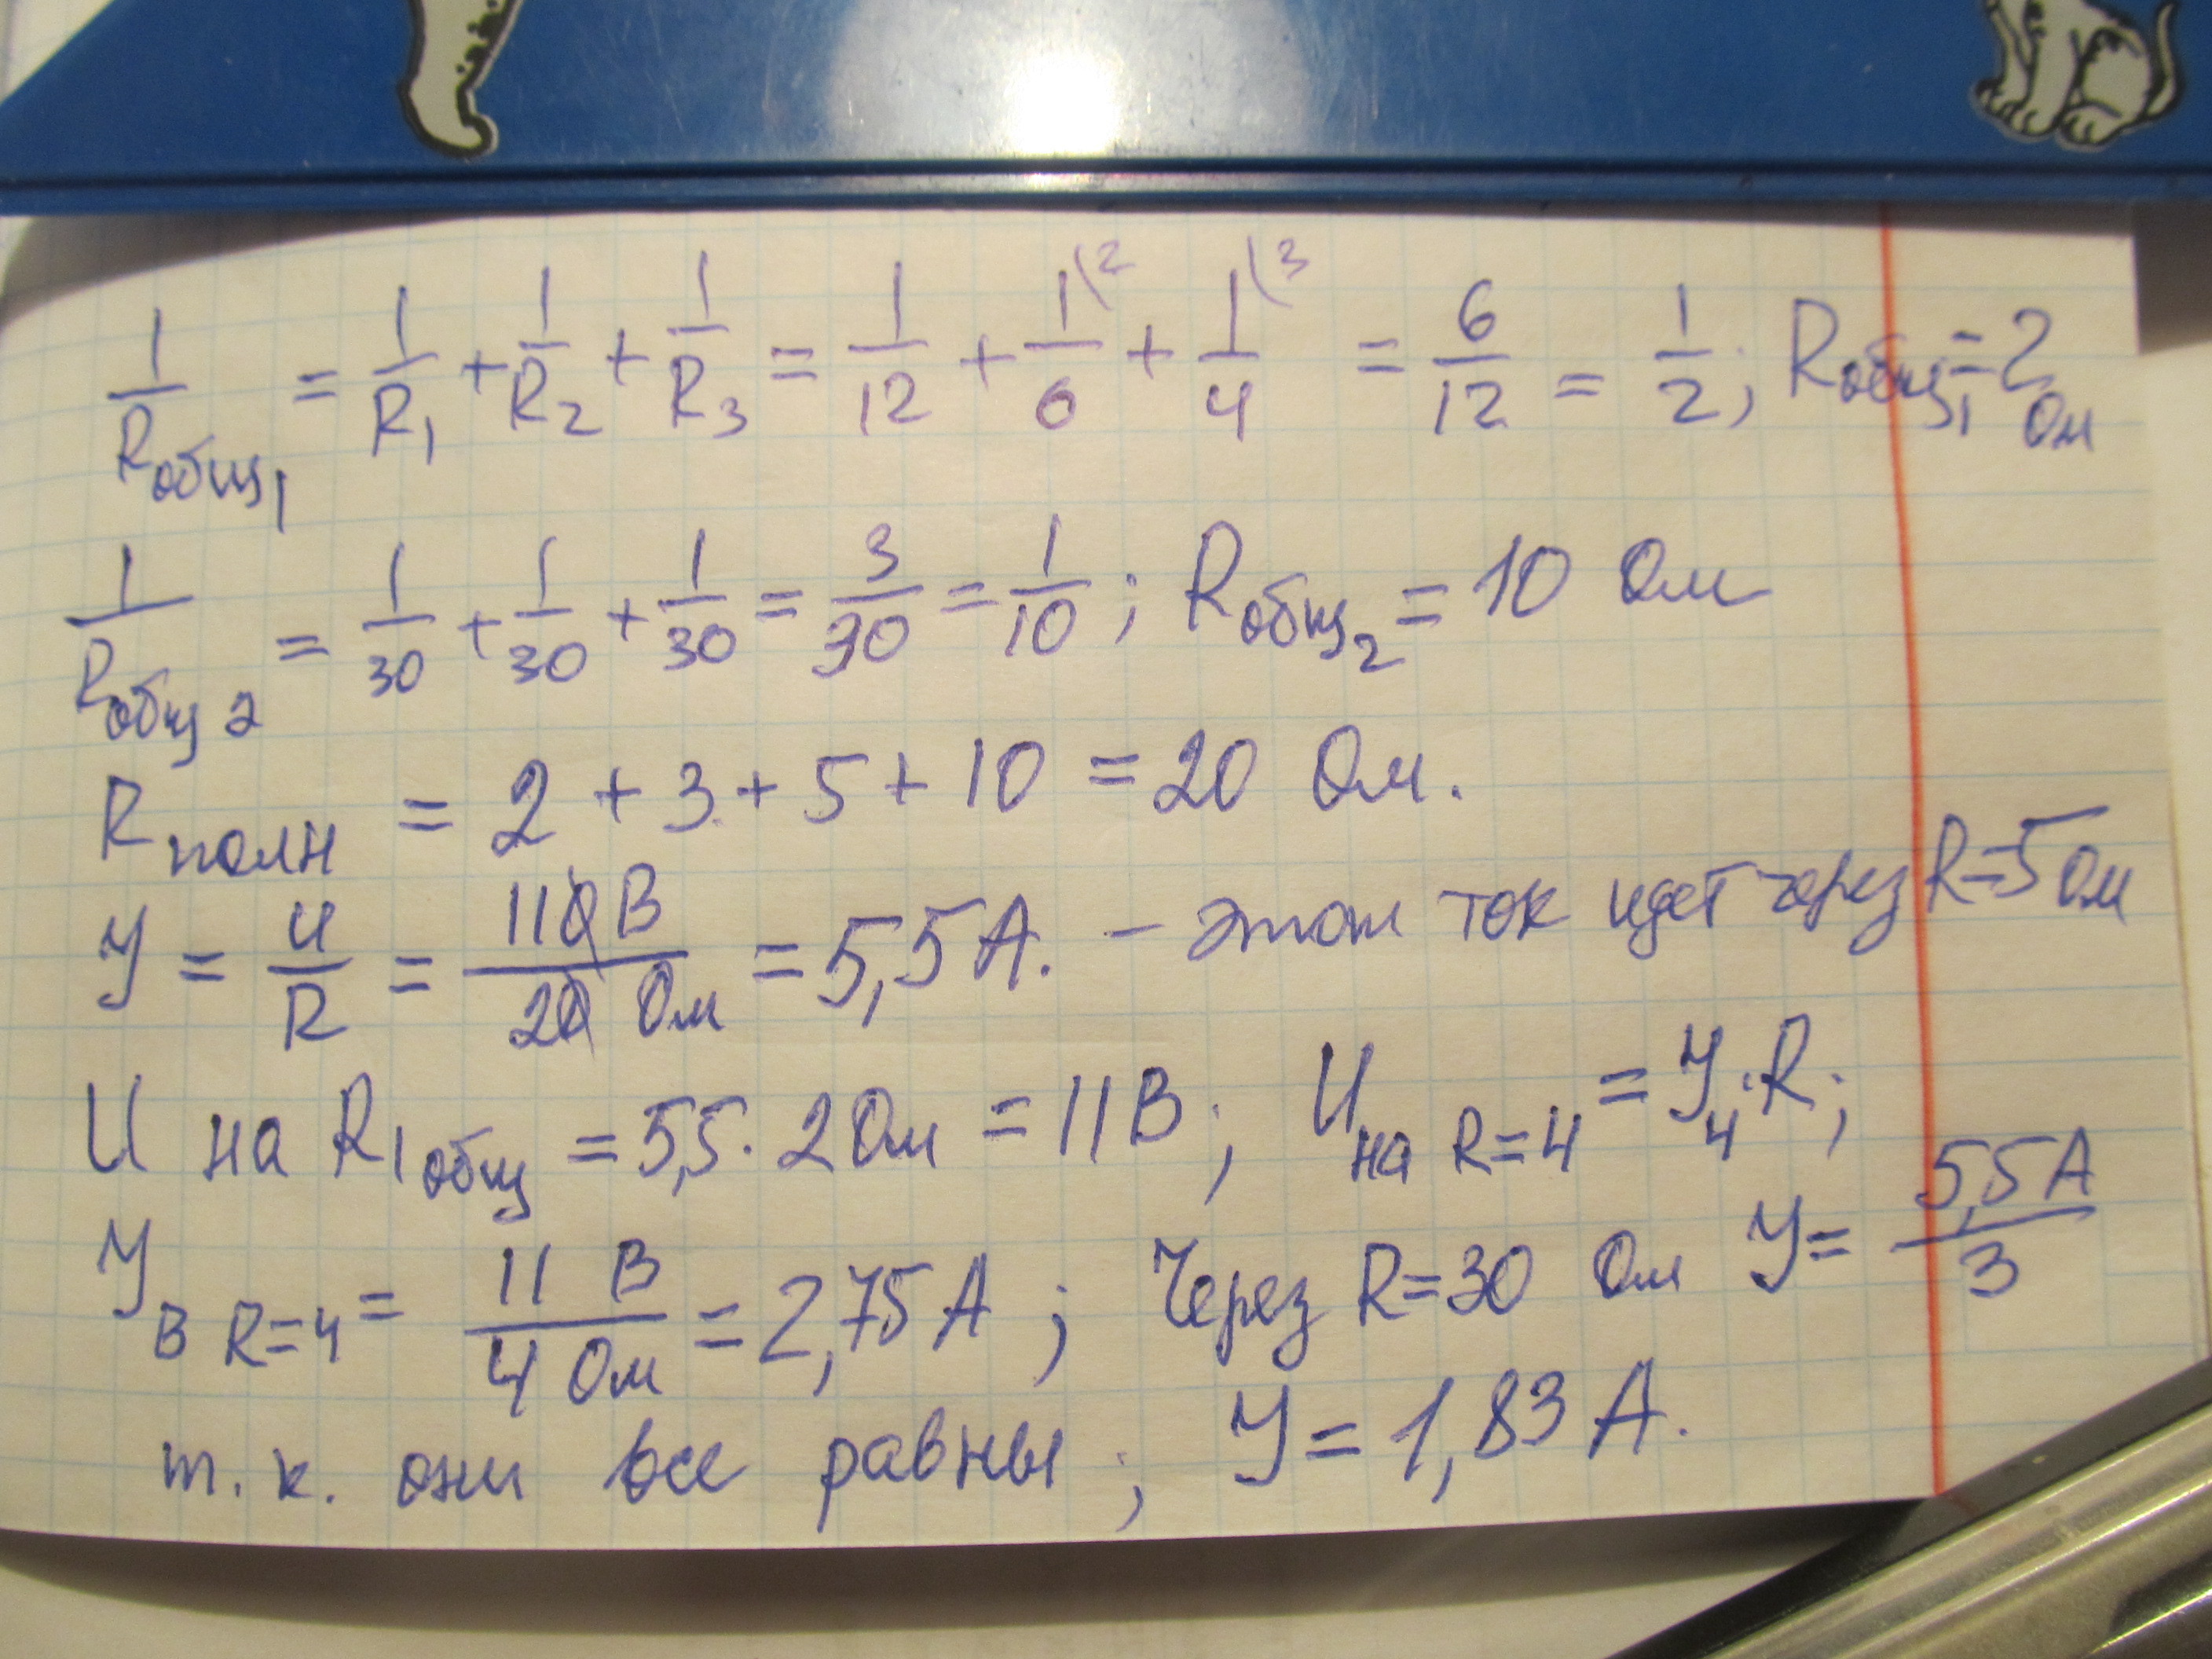 1/Rобщ1 = 1/R1 + 1/R2 + 1/R3 = 1/12 + 1\2/6 + 1\3/4 = 6/12 = 1/2; Rобщ1 = 2 Ом
1/Rобщ2 = 1/30 + 1/30 + 1/30 = 3/30 = 1/10; Rобщ2 = 10 Ом
Rполн = 2 + 3 + 5 + 10 = 20 Ом.
У = U/R = 110 В/20 Ом = 5,5 А. – этот ток идет через R=5 Ом
U на R1общ = 5,5 · 2 Ом = 11 В; U на R=4 = У4·R;
У в R=4 = 11 В/4 Ом = 2,75 А; Через R=30 Ом У = 5,5 А/3
т.к. они все равны; У = 1,83 А.